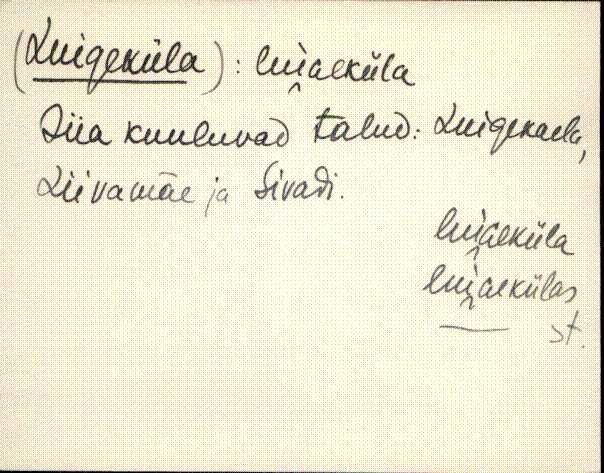 (Luigeküla): lui̯aeküla
Siia kuuluvad talud: Luigekaela,
Liivamäe ja Sivadi.
lui̯aeküla
lui̯aekülas
— st.